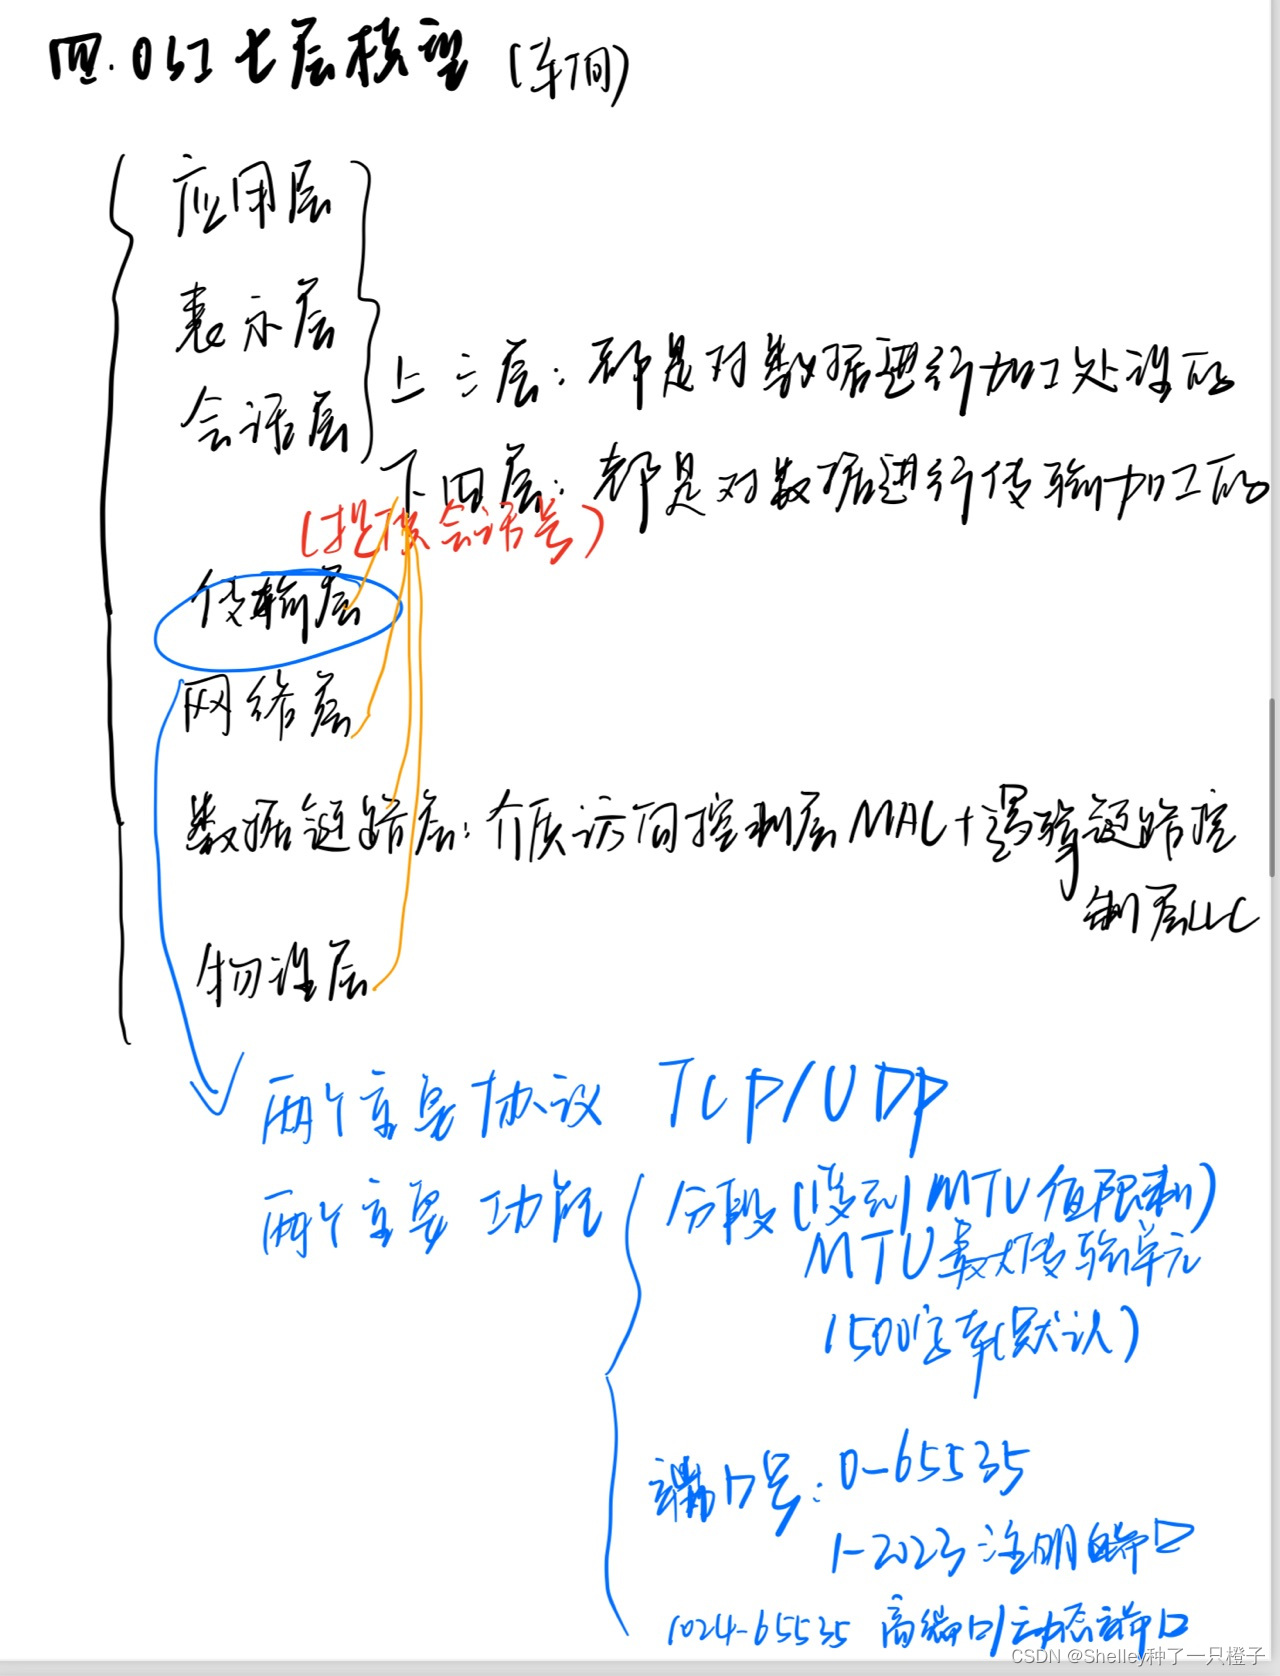 四.OSI七层模型(车间)
应用层
表示层
会话层
上三层:都是对数据进行加工处理的
下四层:都是对数据进行传输加工的
(提供会话号)
传输层
网络层
数据链路层:介质访问控制层MAC+逻辑链路控
制层LLC
物理层
两个主要协议 TCP/UDP
两个主要功能
分段(受到MTU值限制)
MTU最大传输单元
1500字节(默认)
端口号:0-65535
1-2023注明端口
1024-65535 高端口/动态端口
CSDN @Shelley种了一只橙子